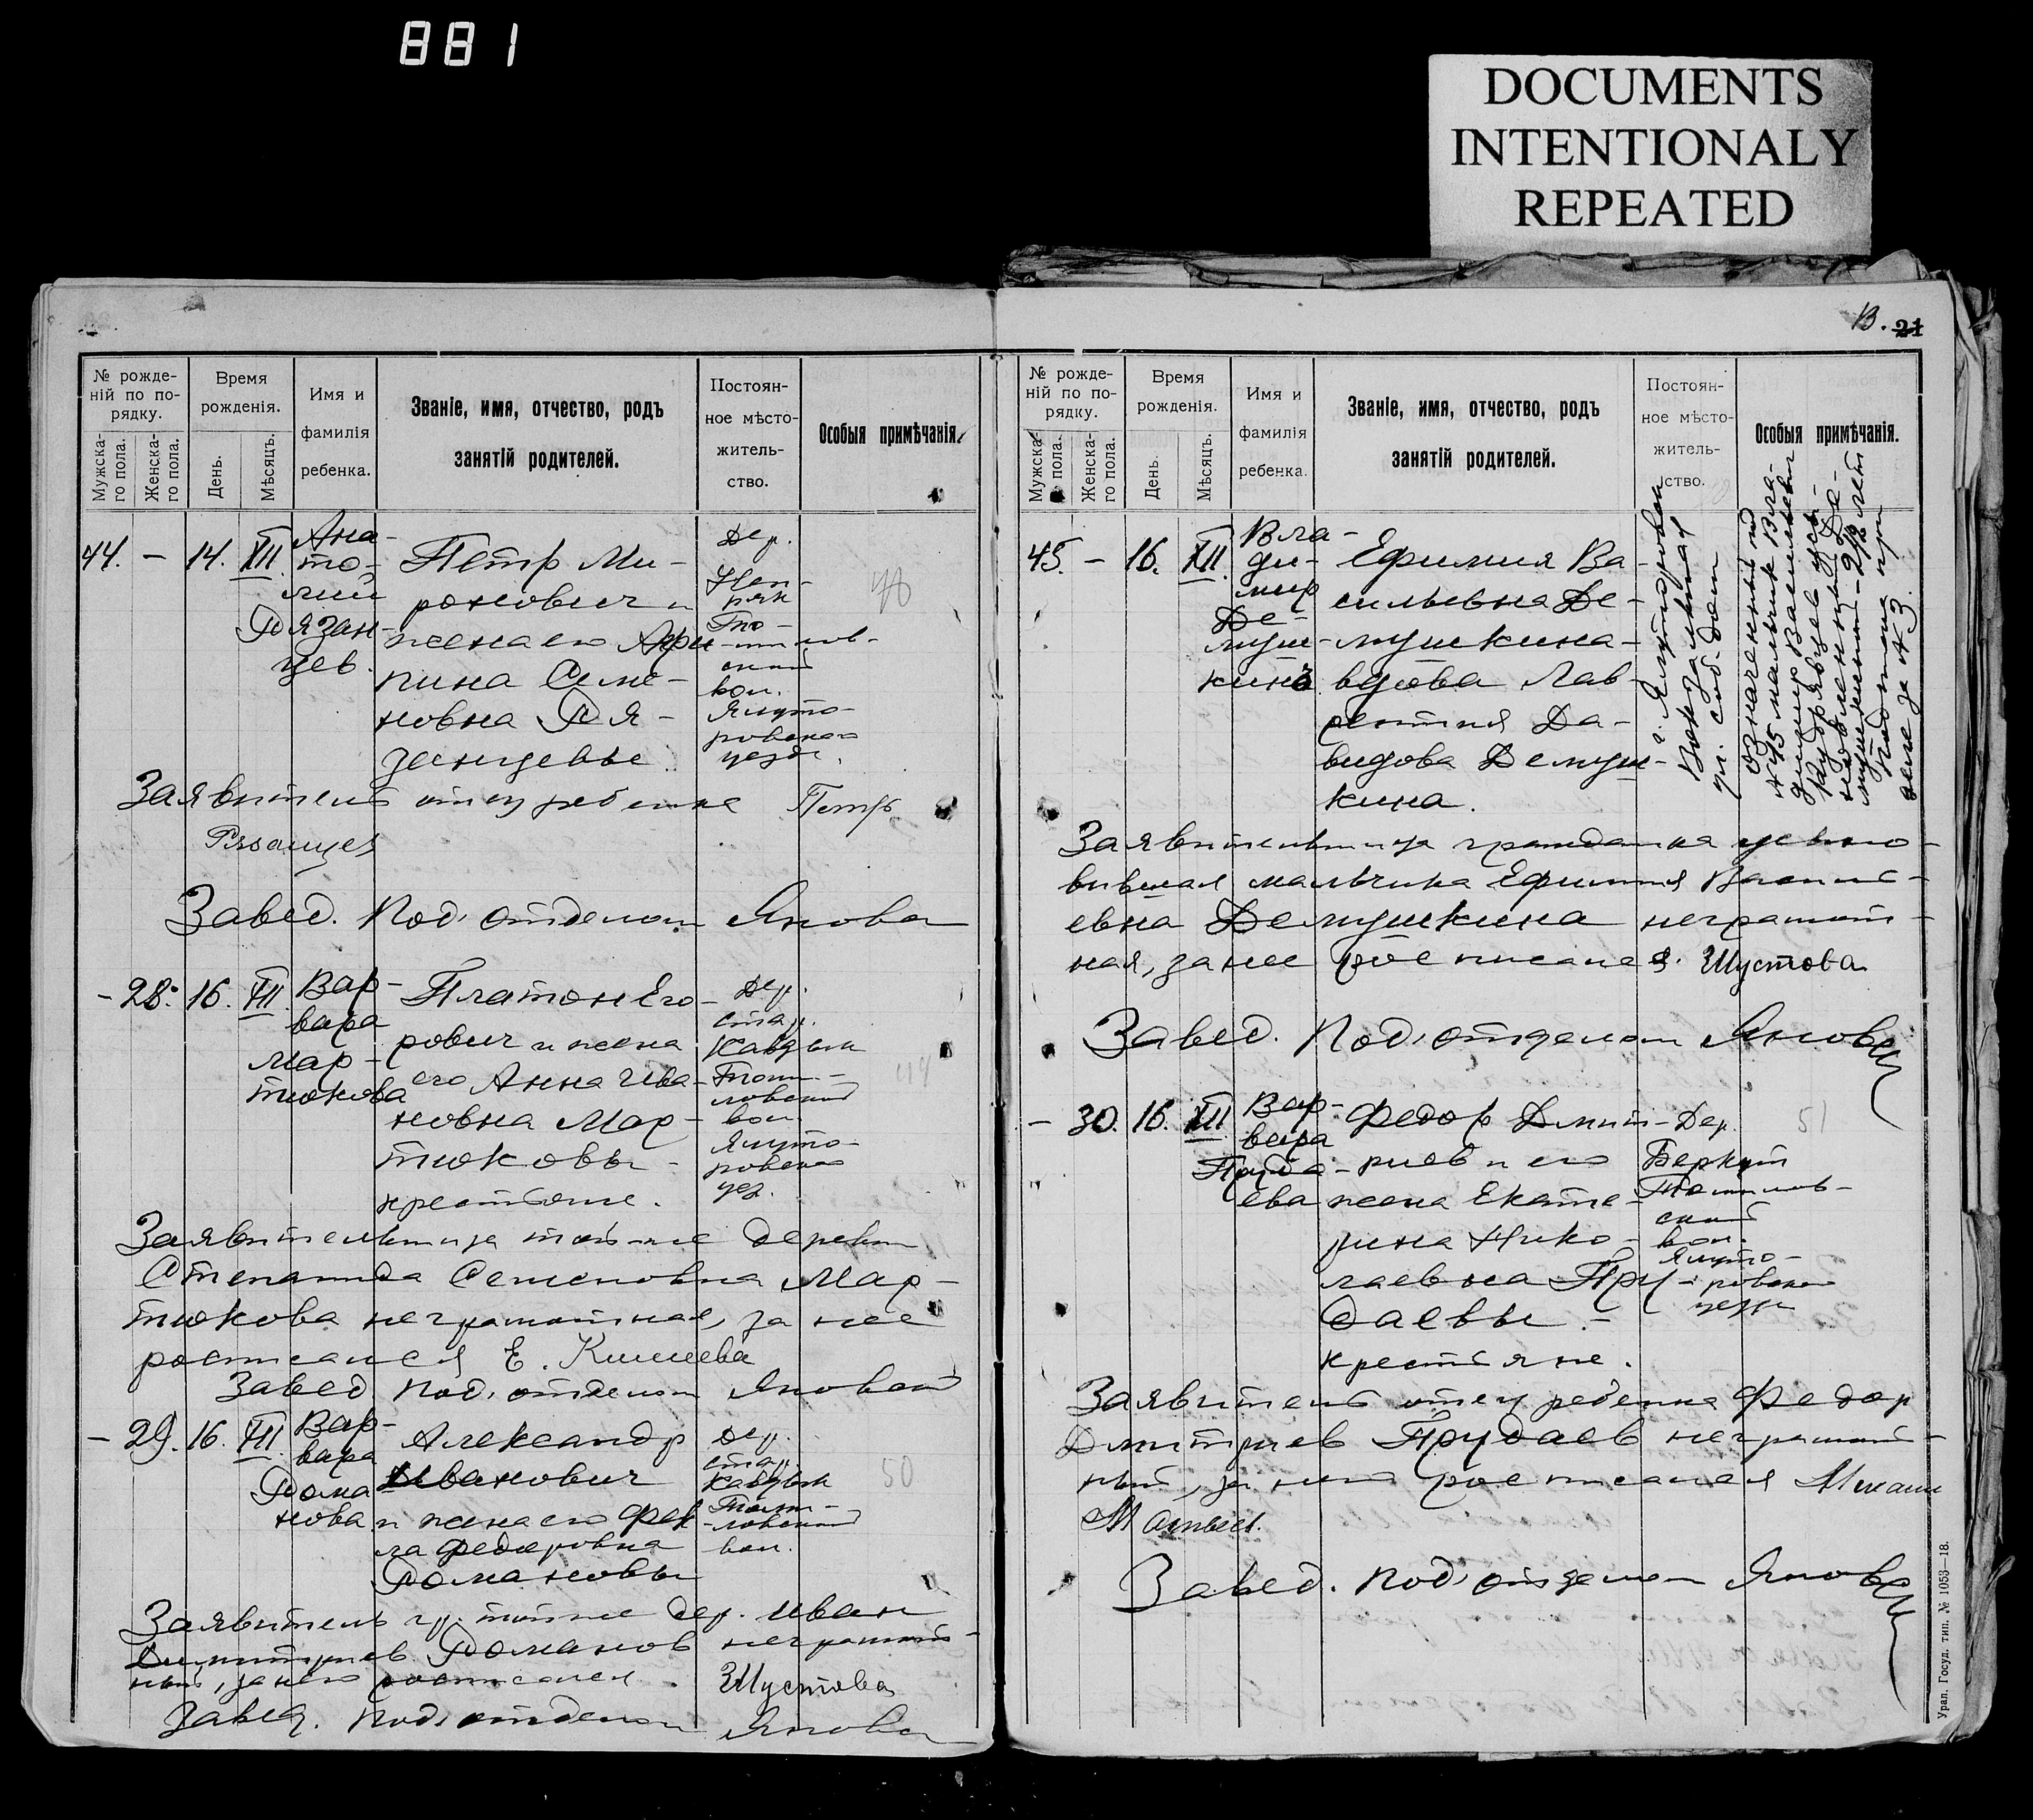 881
DOCUMENTS
INTENTIONALY
REPEATED
№ рожде-
ній по по-
рядку.
Мужска-
го пола.
Женска-
го пола.
Время
рожденія.
День.
Мѣсяцъ.
Имя и
фамилія
ребенка.
Званіе, имя, отчество, родъ
занятій родителей.
Постоян-
ное мѣсто-
житель-
ство.
Особыя примѣчанія.
44. — 14. XII.
Ана-
то-
лий
Рязан-
цев.
Петр Ми-
ронович и
жена его Агри-
пина Семе-
новна Ря-
занцевы.
Дер.
вол.
Ялуто-
ровского
уезда.
Заявитель отец ребенка Петр
Рязанцев
Завед. Под. отделом Янова
— 28. 16. XII.
Вар-
вара
Мар-
тюкова
Платон Его-
рович и жена
его Анна Ива-
новна Мар-
тюковы
крестьяне.
Дер.
стар.
Кавдык
Томи-
ловской
вол.
Ялуто-
ровского
уез.
Заявительница той же деревни
Степанида Семеновна Мар-
тюкова неграмотная, за нее
росписался Е.
Завед Под. отделом
— 29. 16. XII.
Вар-
вара
Рома
нова
Александр
Иванович
и жена его Фек
ла Федоровна
Романовы
Дер.
стар.
Кавдык
Томи-
ловской
вол.
50
Заявитель гр. той же дер. Иван
Димитриев Романов неграмот-
ный, за него росписался Шустова
Завед. Под. отделом Янова
В. 21
№ рожде-
ній по по-
рядку.
Мужска-
го пола.
Женска-
го пола.
Время
рожденія.
День.
Мѣсяцъ.
Имя и
фамилія
ребенка.
Званіе, имя, отчество, родъ
занятій родителей.
Постоян-
ное мѣсто-
житель-
ство.
Особыя примѣчанія.
45. — 16. XII.
Вла-
ди-
мир
Де-
муш-
кинъ
Ефимия Ва-
сильевна Де-
мушкина-
вдова Лав-
рентия Да-
видова Демуш-
кина.
г. Ялуторовск
Вокзальная
ул. соб. дом
Означенный под
№ 45 мальчик Вла-
димир Васильевич
Кудрявцев усы-
новлен
за № 3.
Заявительница гражданка усыно-
вившая мальчика Ефимия Василь-
евна Демушкина неграмот-
ная, за нее росписался. Шустова
Завед. Под. отделом Янова
— 30. 16. XII.
Вар-
вара
Пруда-
ева
Федор Дмит-
риев и его
жена Екате-
рина Нико-
лаевна Пру-
даевы.
крестьяне.
Дер.
Беркут
Томилов-
ской
вол.
Ялуто-
ровского
уезда
51
Заявитель отец ребенка Федор
Дмитриев Прудаев неграмот-
ный, за него росписался
Матвеев.
Завед. Под. отделом Янова
Урал. Госуд. тип. № 1053—18.